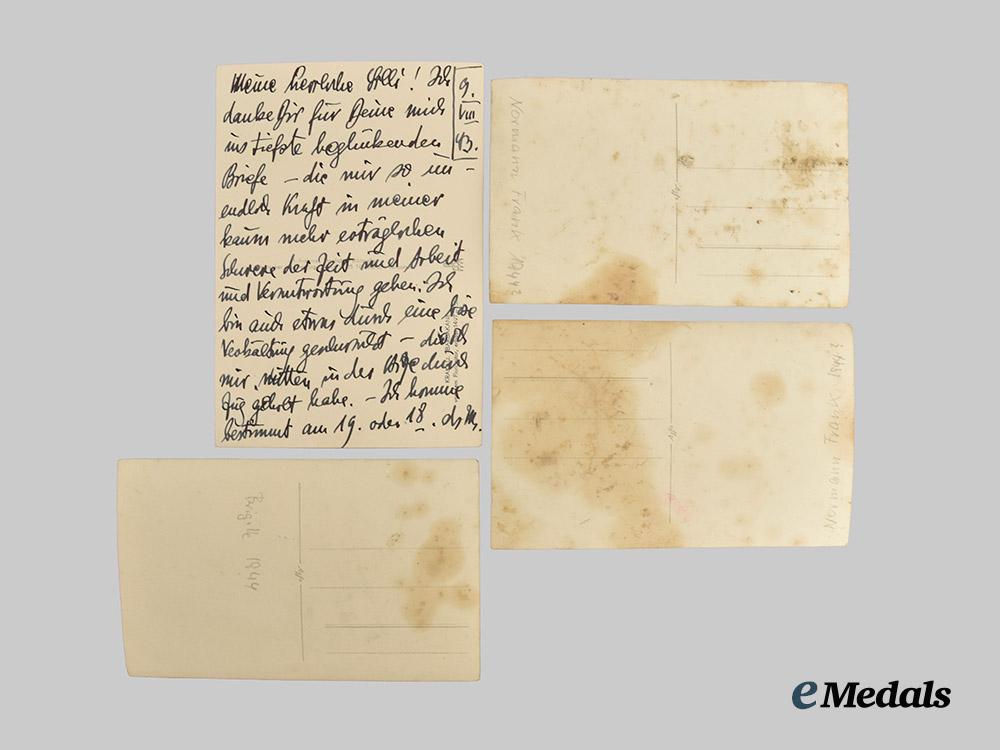 Meine herrliche Lilli! Ich
danke Dir für Deine mich
ins tiefste beglückenden
Briefe – die mir so un-
endlich Kraft in meiner
kaum mehr erträglichen
Schwere der Zeit und Arbeit
und Verantwortung geben. Ich
bin auch etwas durch eine böse
Verkühlung geschwächt – die ich
mir, mitten in der Hitze durch
Zug geholt habe. – Ich komme
bestimmt am 19. oder 18. ds Ms.
9.
VIII
43.
Normann Frank 1944?
Normann Frank 1944?
Brigitte 1944
eMedals